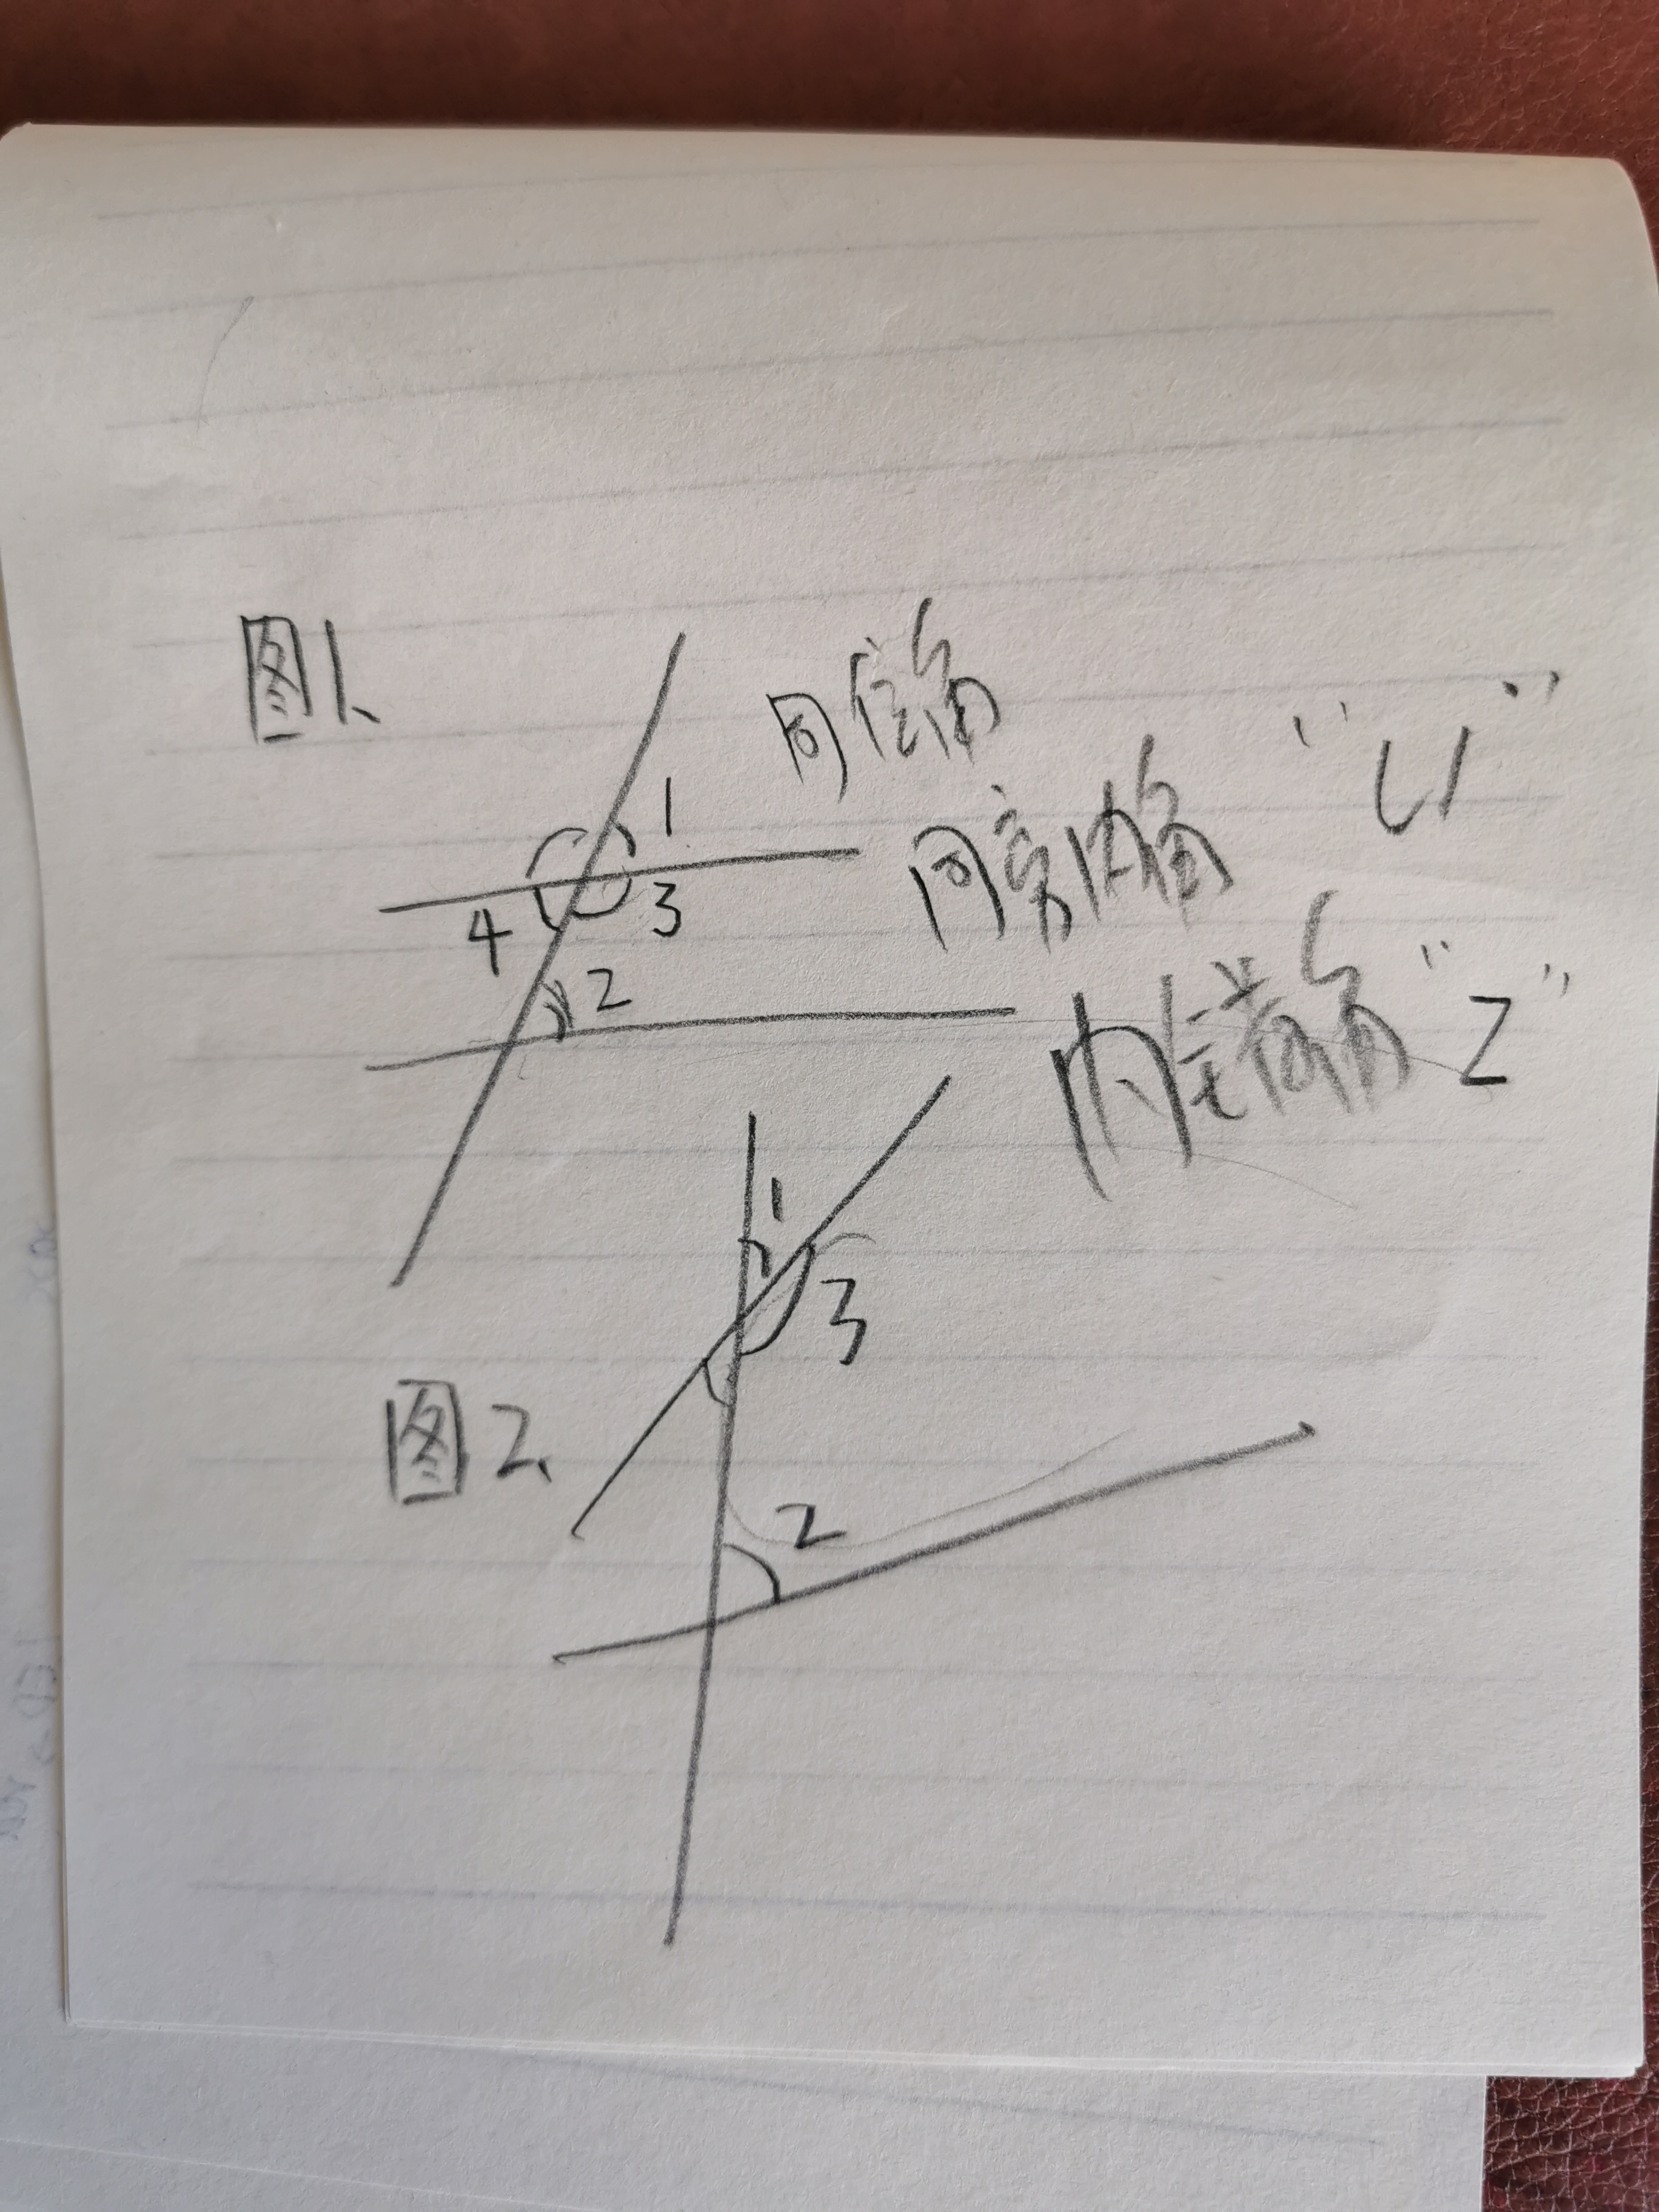 图1、
同位角
同旁内角 "U"
内错角 "Z"
1
4 3
2
图2、
1
3
2